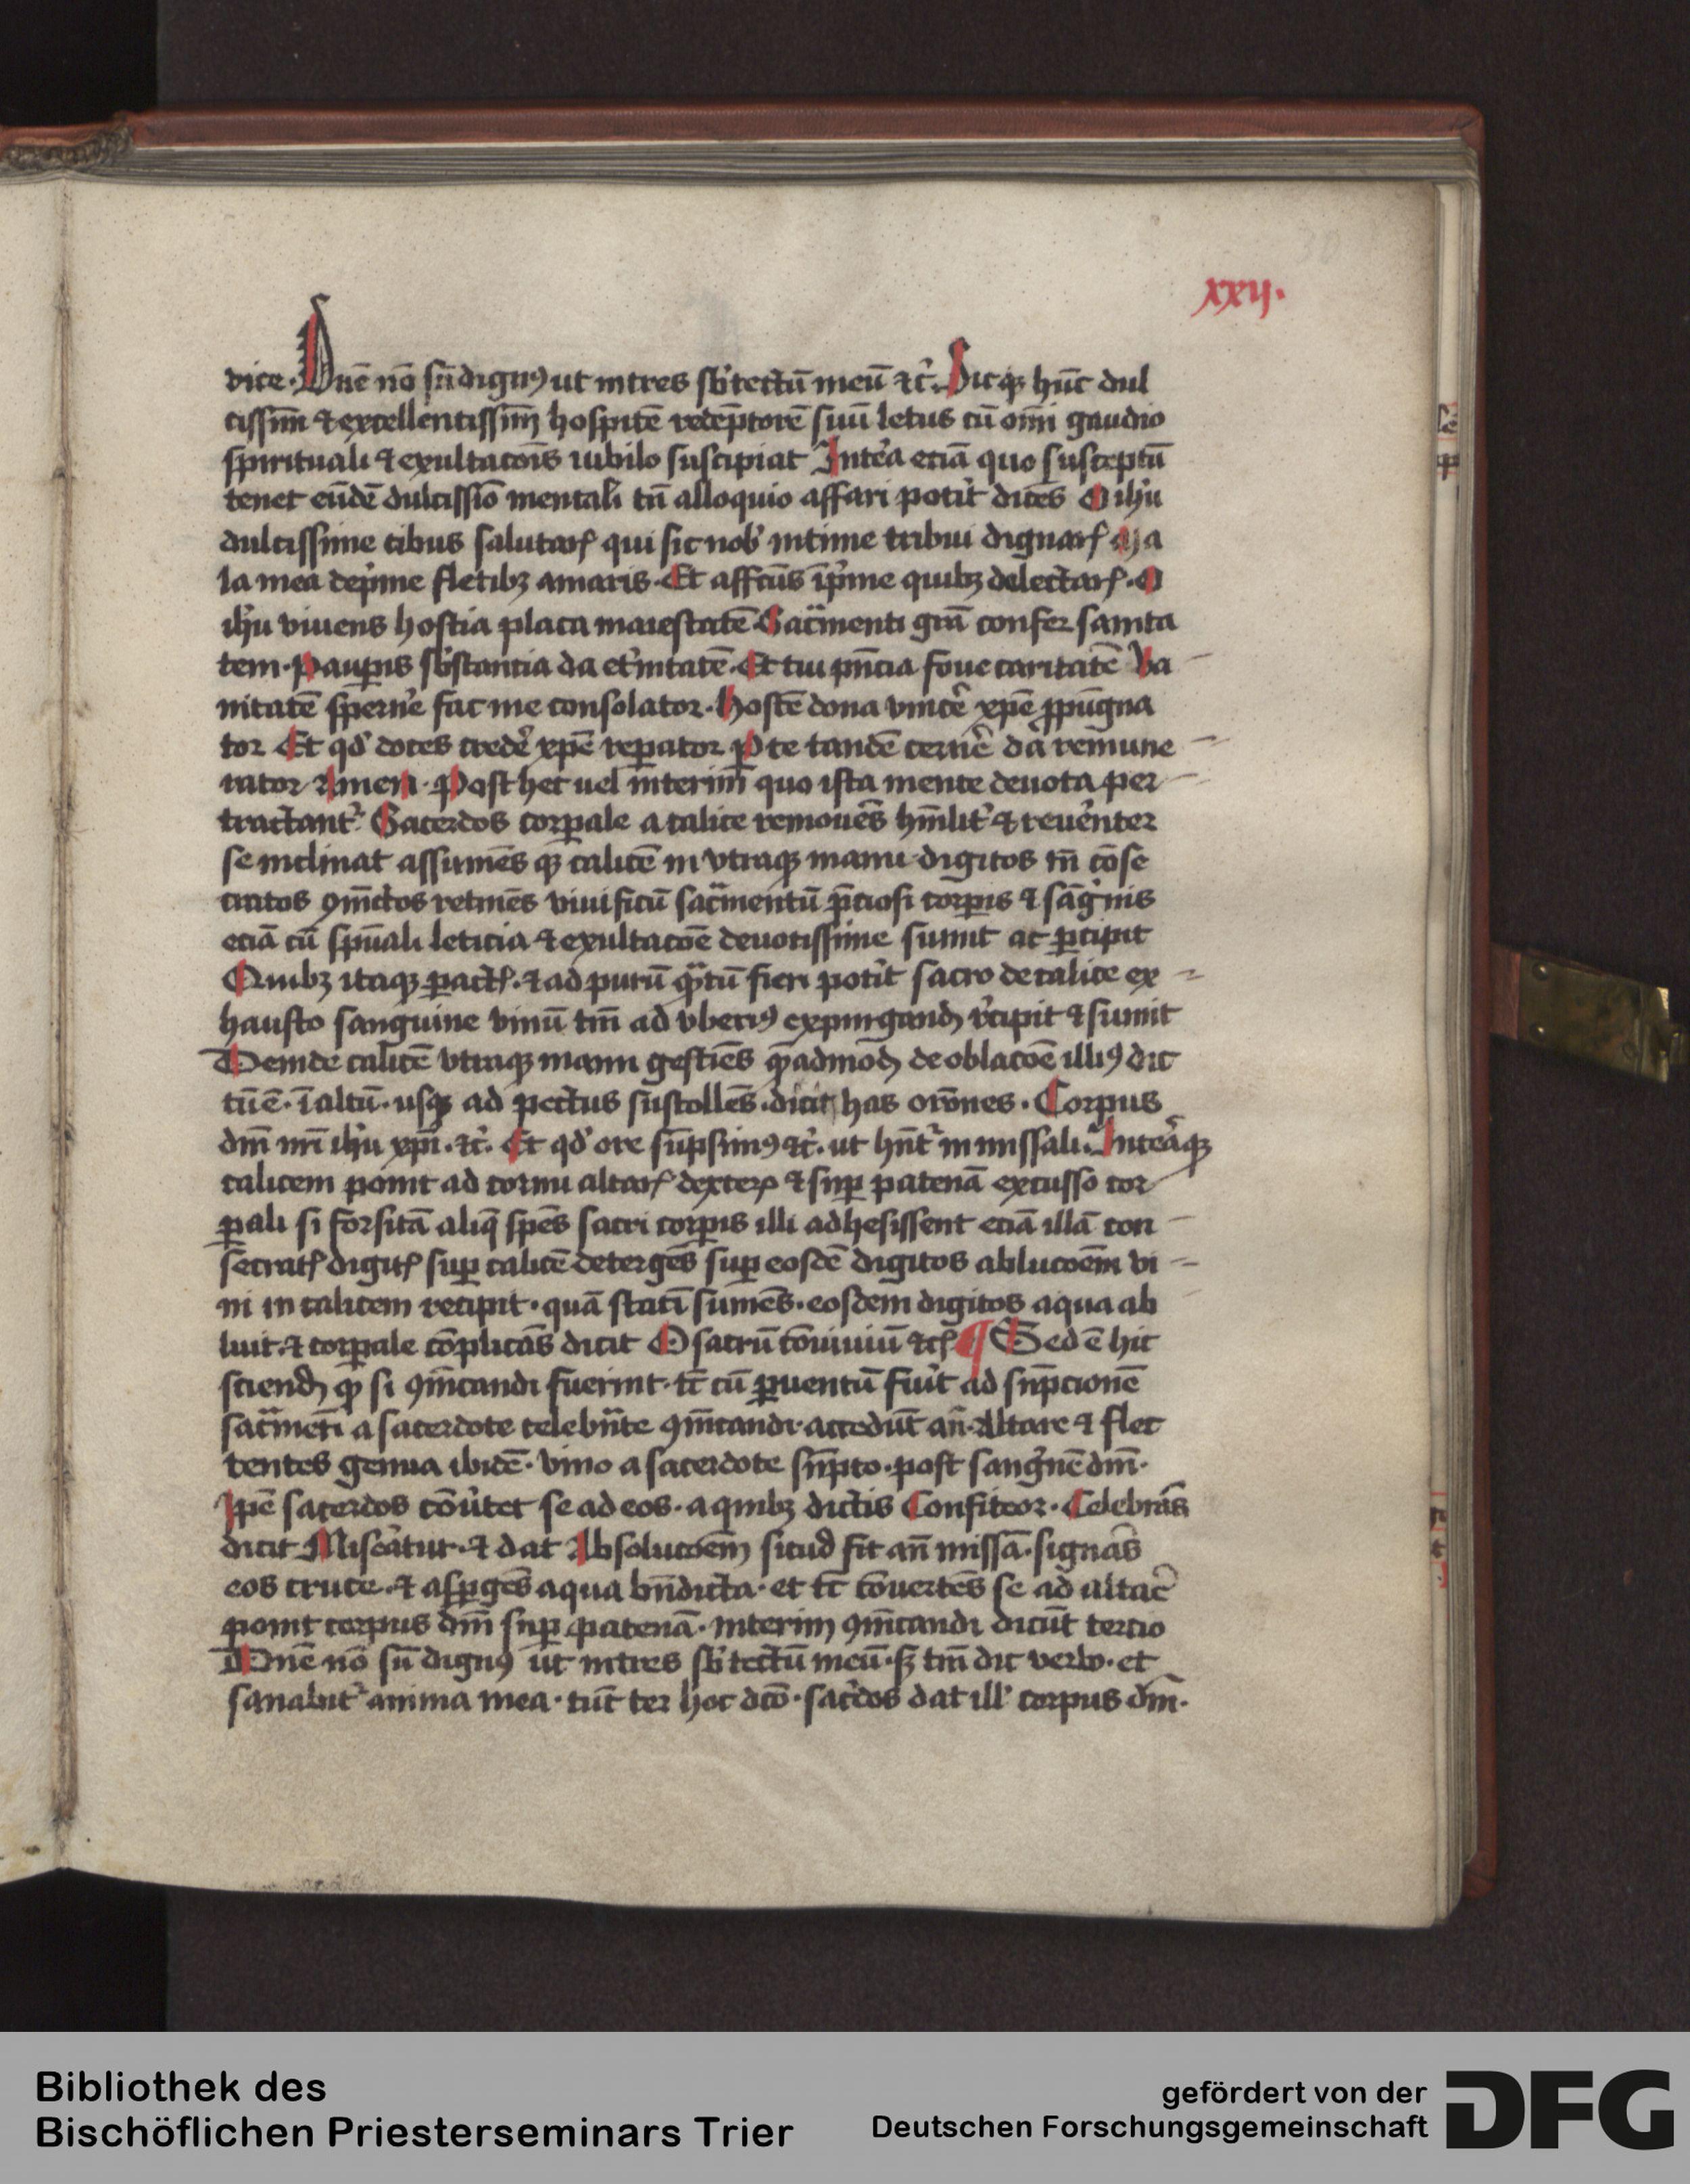 30
xxij.
vice. Dn̄e nō sū dignꝰ ut intres sb̓ tectū meū ⁊c̓. Sicqꝫ hūc dul
cissim̄ ⁊ excellentissim̄ hospitē redēptorē suū letus cū om̄i gaudio
spirituali ⁊ exultacōis iubilo suscipiat Intēa eciā quo susceptū
tenet eūdē dulcissīo mentali tn̄ alloquio affari potit̓ dicēs O ihū
dulcissime cibus salutarꝭ qui sic nob̓ intime tribui dignarꝭ Ma
la mea dep̓me fletibꝫ amaris. Et affc̄us īp̓me quibꝫ delectarꝭ. O
ihū viuens hostia placa maiestatē Sac̄menti grā confer sanita
tem. Paup̱is sb̓stantia da et̓nitatē. Et tui pn̄cia foue caritatē Va
nitatē sperne̓ fac me consolator. Hostē dona vince̓ xpē ꝓpūgna
tor Et qd̓ doces crede̓ xpē rep̱ator P̱ te tandē cerne̓ da remune
rator Amen. Post hec uel interim̄ quo ista mente deuota per
tractant᷑ Sacerdos corp̱ale a calice remouēs hūlit̓ ⁊ reue̓nter
se inclinat assumēs qꝫ calicē in vtraqꝫ manu digitos tn̄ cōse
cratos ꝯiūctos retinēs viuificū sac̄mentū p̄ciosi corp̱is ⁊ sāg̓nis
eciā cū spūali leticia ⁊ exultacōe deuotissime sumit ac p̱cipit
Quibꝫ itaqꝫ p̱actꝭ. ⁊ ad purū qᷓtū fieri potit̓ sacro de calice ex
hausto sanguine vinū tm̄ ad vberiꝰ expurgandū recipit ⁊ sumit
Deinde calicē vtraqꝫ manu gestiēs qᷓadmodū de oblacōe illiꝰ dic
tū ē. ī altū. usqꝫ ad pectus sustollēs. dicit has orōnes. Corpus
dn̄i nr̄i ihū xpī. ⁊c̓. Et qd̓ ore sūpsimꝰ ⁊c̓. ut hn̄t᷑ in missali. Inteaqꝫ
calicem ponit ad cornu altarꝭ dexterꝭ ⁊ sup̱ patenā excusso cor
p̱ali si forsitā aliq̄ sp̄es sacri corp̱is illi adhesissent eciā illā con
secratꝭ digitꝭ sup̱ calicē detergēs sup̱ eosdē digitos ablucōem vi
ni in calicem recipit. quā statī sumēs. eosdem digitos aqua ab
luit. ⁊ corp̱ale cōplicās dicit O sacrū cōuiuiū ⁊cꝭ ¶ Sed ē hic
sciendū ꝙ si ꝯīcandi fuerint. tc̄ cū p̱uentū fuit̓ ad sūpcionē
sac̄menti a sacerdote celebn̄te ꝯīcandi. accedūt an̄. Altare ⁊ flec
tentes genua ibidē. vino a sacerdote sūpto. post sang̓nē dn̄i.
Ipē sacerdos cōu̓tet se ad eos. a quibꝫ dictis Confiteor. Celebrās
dicit Miseātur. ⁊ dat Absolucōem sicud fit an̄ missā. signās
eos cruce. ⁊ asp̱gēs aqua bn̄dicta. et tc̄ cōuertēs se ad altare̓
ponit corpus dn̄i sup̱ patenā. interim ꝯīcandi dicūt tercio
Dn̄e nō sū dignꝰ ut intres sb̓ tectū meū. sꝫ tm̄ dic verbo. et
sanabit᷑ anima mea. tūc ter hoc dc̄o. sac̓dos dat ill̓ corpus dn̄i.
Bibliothek des
Bischöflichen Priesterseminars Trier
gefördert von der
Deutschen Forschungsgemeinschaft
DFG